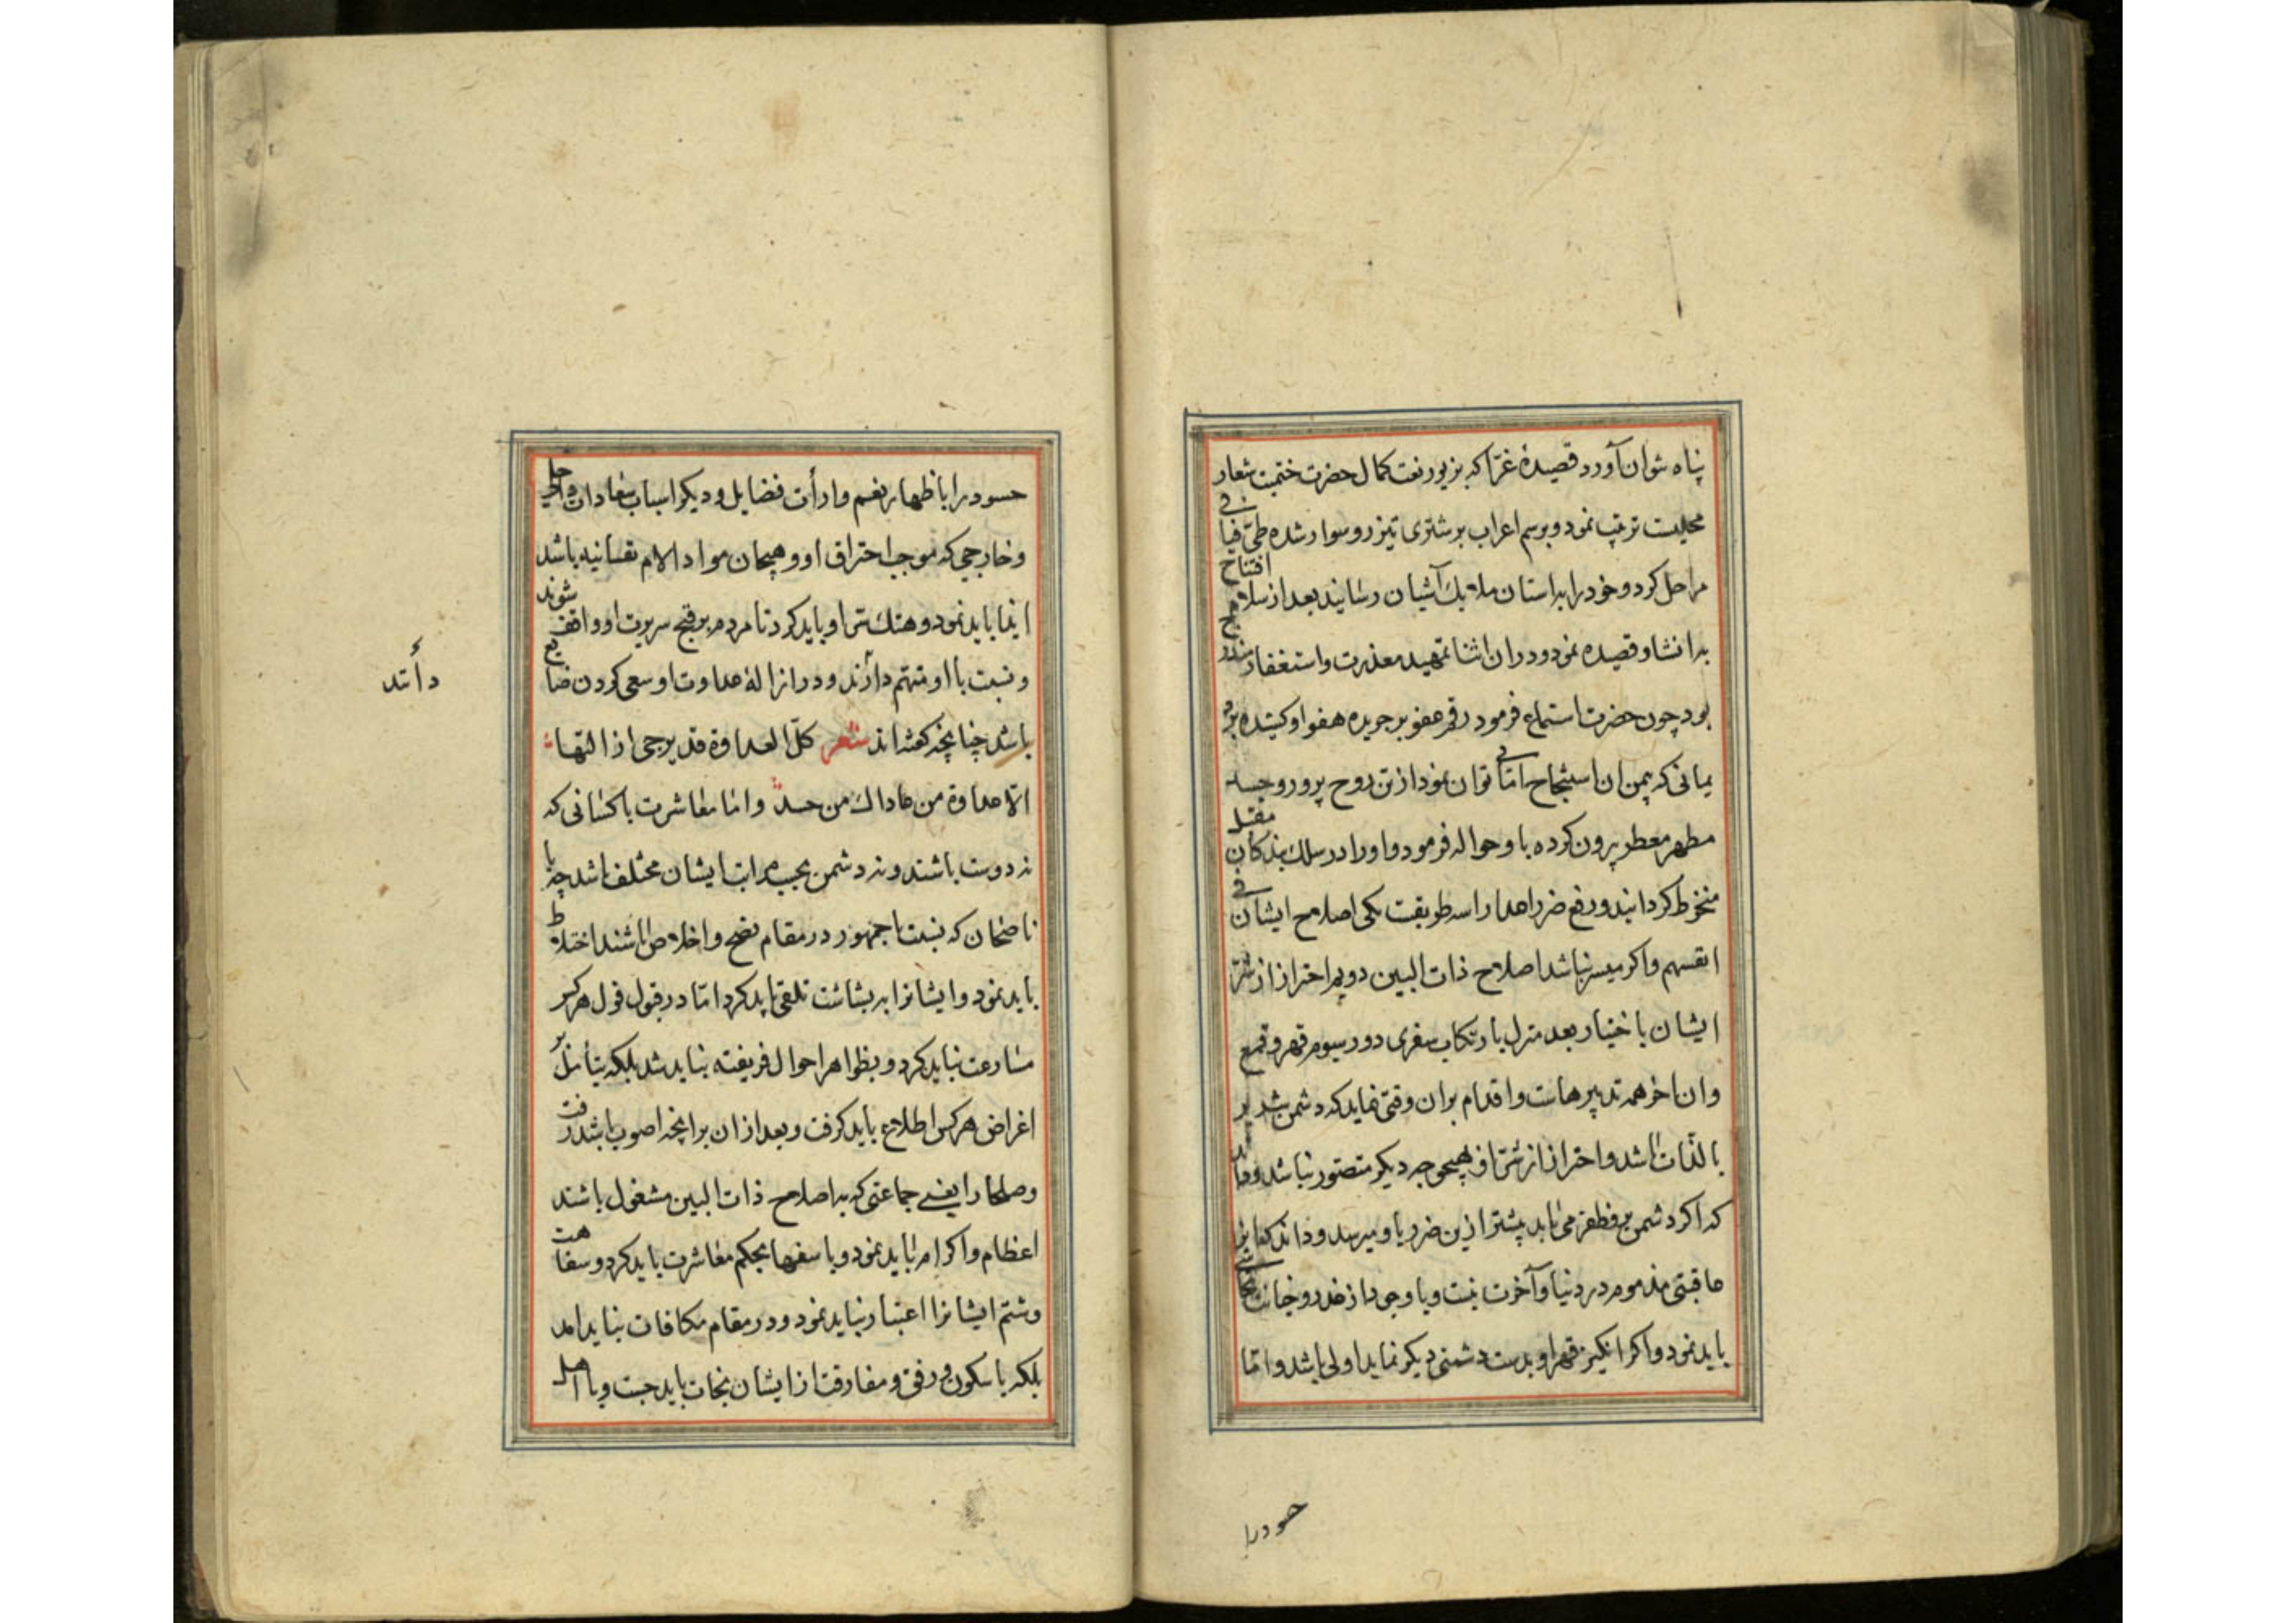 پناه شوان آورد قصیدهٔ غرّا که بزیور نعت کمال حضرت ختمیت شعار
محلیست ترتیب نمود و برسم اعراب بر شتری تیزرو سوار شده طیّ فیافی
مراحل کرد و خود را بدا ستان ملایک آشیان رسانید بعد از سلام افتتاح
بدانشاد قصیده نمود و دران اثنا تمهید معذرت و استغفار مندرج
بود چون حضرت استماع فرمود رقم عفو بر جریده هفو او کشیده برد
یمانی که بمن ان استنجاح امانی توان نمود از تن روح پرور و جسد
مطهر معطر بیرون کرده باو حواله فرمود و او را در سلک بندکان مقبل
منخرط کردانید و رفع ضرر اعدا را سه طریقست یکی اصلاح ایشان فی
انفسهم و اکر میسر نباشد اصلاح ذات البین دویم احتراز از شرّ
ایشان باختیار بعد منزل یا رتکاب سفری دور سیوم قهر و قمع
وان اخر همه تدبیرهاست و اقدام بران وقتی نماید که دشمن شریر
بالذات باشد و احتراز از شرّ او بهیچوجه دیکر متصور نباشد و داند
که اکر دشمن برو ظفر می یابد پیشتر ازین ضرر باو میرسد و داند که انرا
عاقبتی مذموم در دنیا و آخرت نیست و باوجود از غدر و خیانت تحاشی
باید نمود و اکر انکیز قهر او بدست دشمنی دیکر نماید اولی باشد و امّا
حسود را
حسود را باظهار نعم و ارأت فضایل و دیکر اسباب سعادات داخلی
و خارجی که موجب احتراق او و هیجان مواد الام نفسانیه باشد
ایذا باید نمود و هتک ستر او باید کرد تا مردم بر قبح سریرت او واقف شوند
و نسبت باو متهم دارند و در ازالهٔ عداوت او سعی کردن ضایع
باشد چنانچه کفته اند شعر کلّ العداوة قد یرجی ازالتها
الّا عداوة من عاداك من حسد و امّا معاشرت با کسانی که
نه دوست باشند و نه دشمن بحسب مراتب ایشان مختلف باشد چه با
ناصحان که نسبت با جمهور در مقام نصح و اخلاص باشند اختلاط
باید نمود و ایشانرا ببشاشت تلقی باید کرد امّا در قبول قول هر کس
مسارعت نباید کرد و بظواهر احوال فریفته نباید شد بلکه بتأمل بر
اغراض هر کس اطلاع باید کرفت و بعد ازان برانچه اصوب باشد رفت
و صلحا را یعنی جماعتی که باصلاح ذات البین مشغول باشند
اعظام و اکرام باید نمود و با سفها بحکم معاشرت باید کرد و سفاهت
و شتم ایشانرا اعتبار نباید نمود و در مقام مکافات نباید امد
بلکه با سکون و رفق و مفارقت از ایشان نجات باید جست و با اهل
دأتد